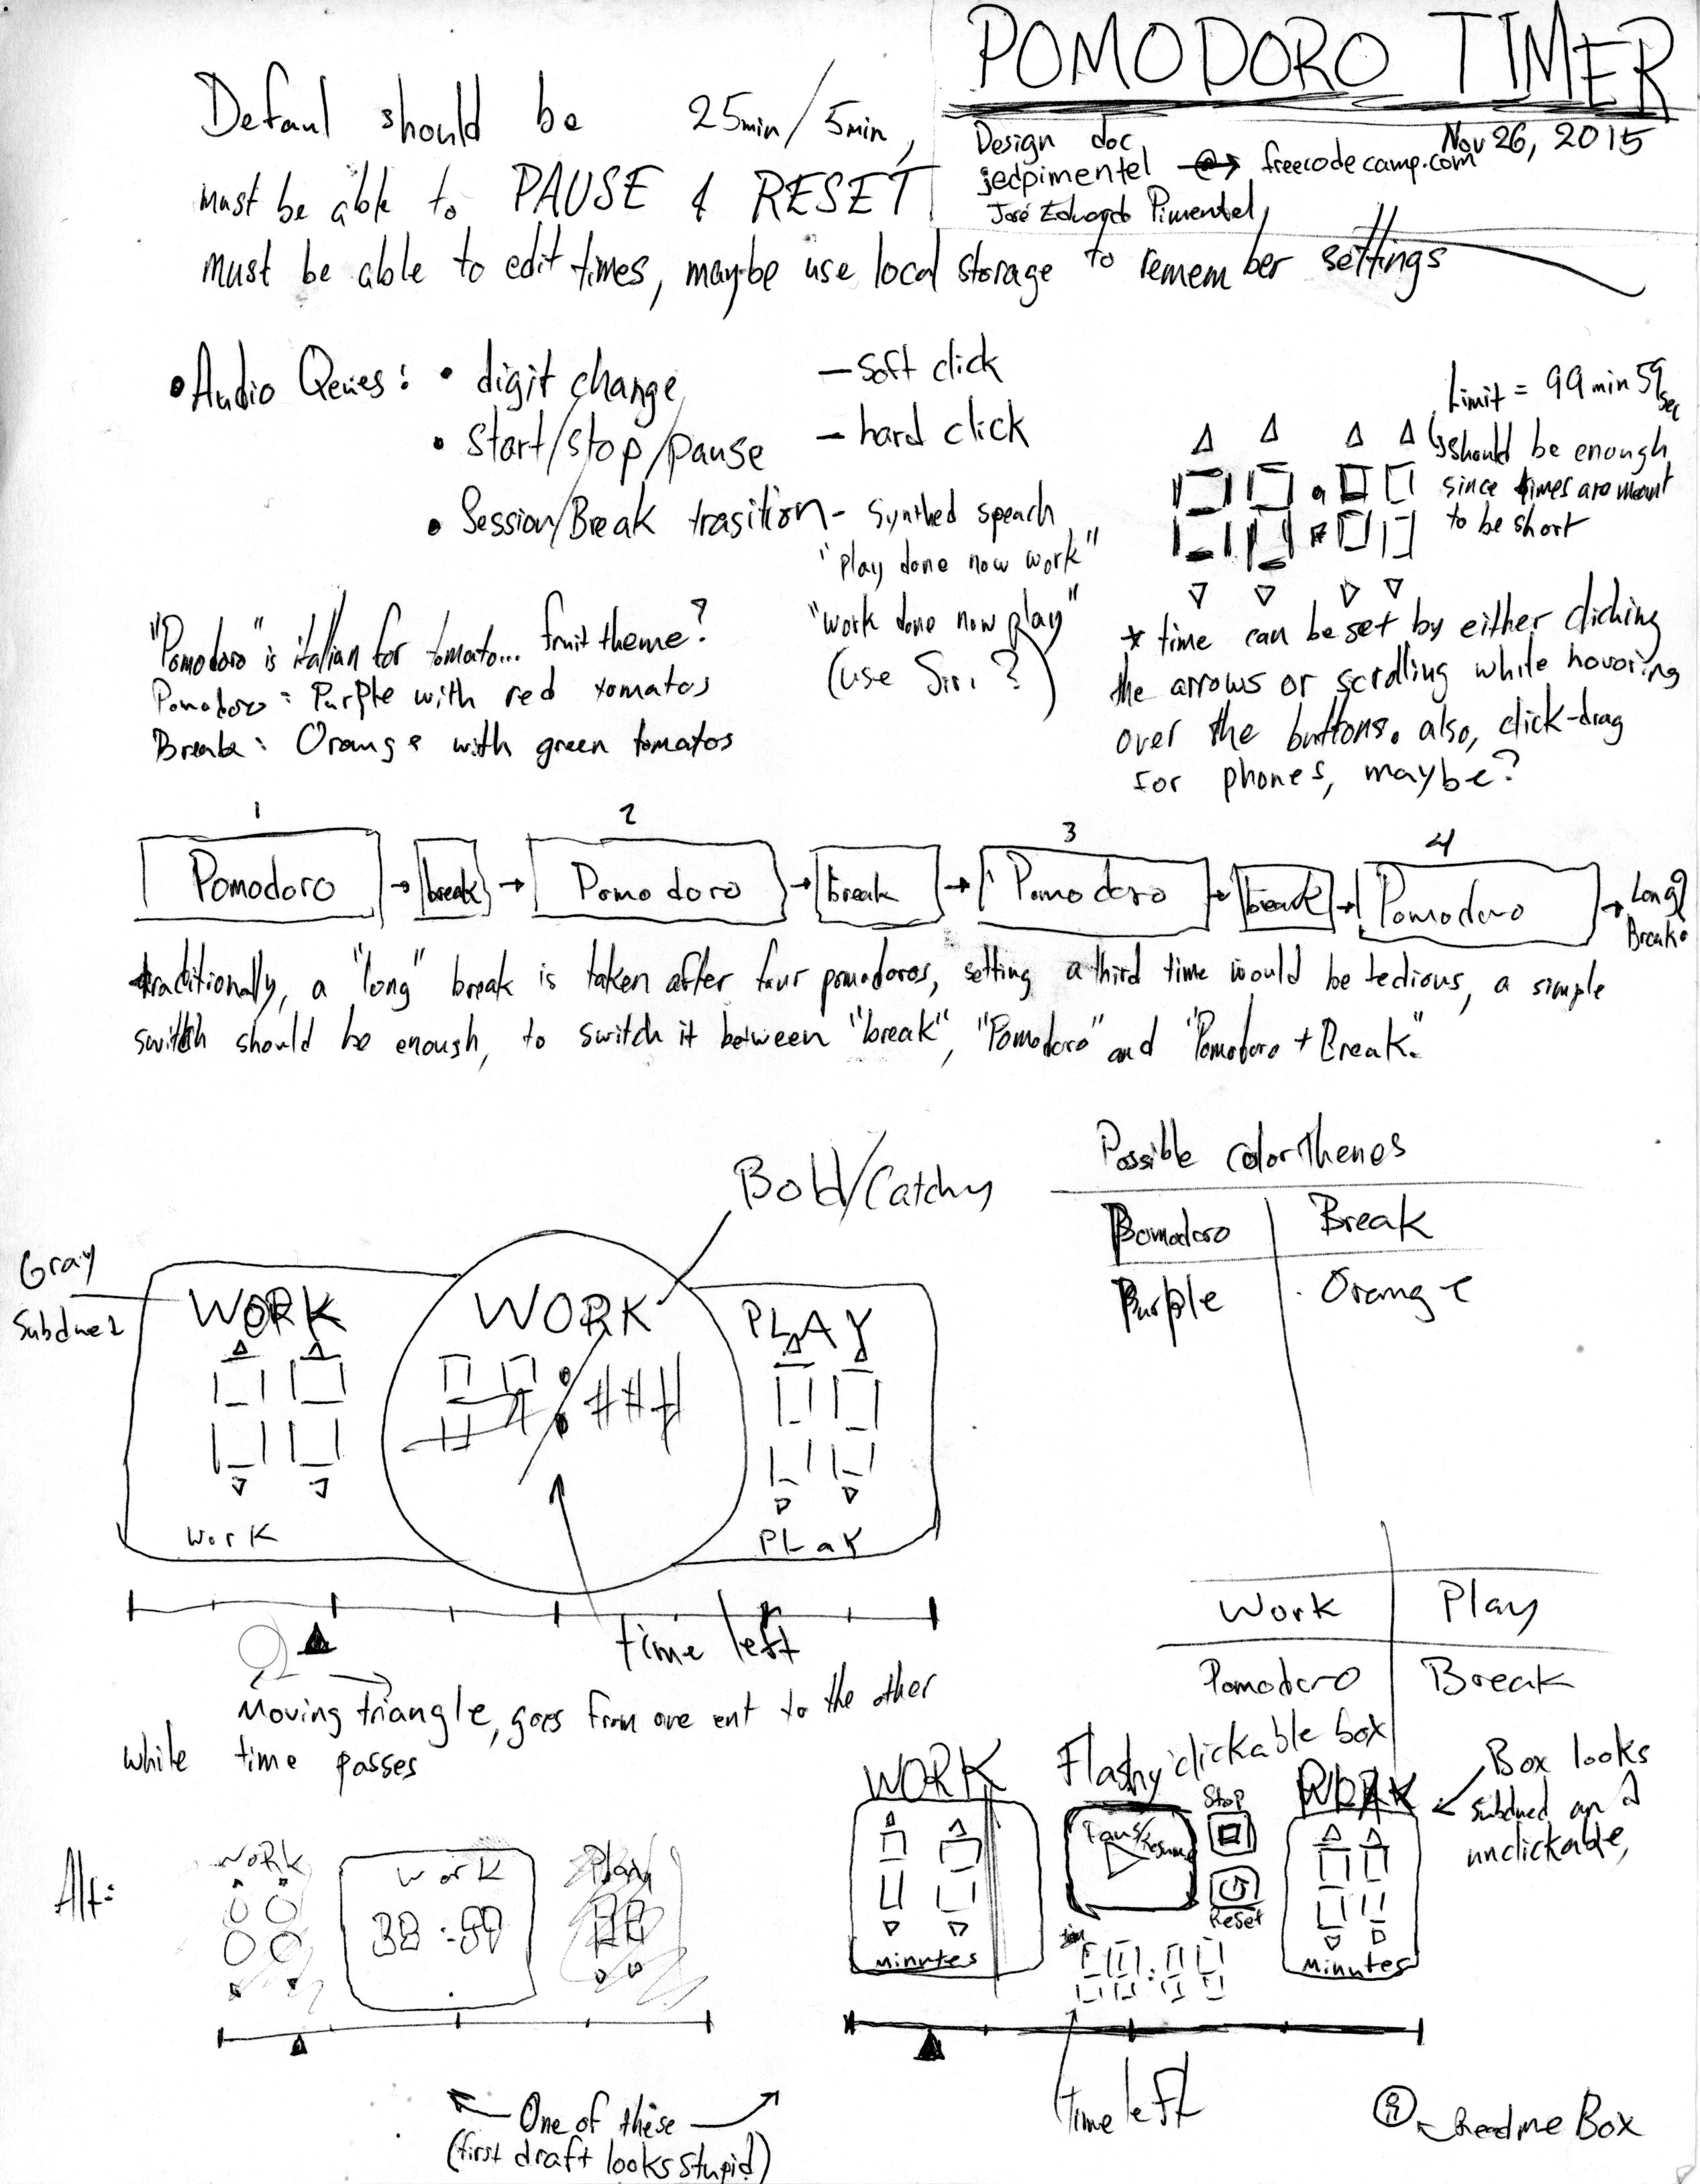 POMODORO TIMER
Nov 26, 2015
Design doc
jedpimentel @→ freecodecamp.com
José Eduardo Pimentel
Defaul should be 25min/5min,
must be able to PAUSE & RESET
must be able to edit times, maybe use local storage to remember settings
• Audio Qeues: • digit change — soft click
• start/stop/pause — hard click
• Session/Break trasition - Synthed speach
"play done now work"
"work done now play"
(use Siri?)
Limit = 99 min 59 sec
↳ should be enough
since times are meant
to be short
* time can be set by either clicking
the arrows or scrolling while hovoring
over the buttons. also, click-drag
for phones, maybe?
"Pomodoro" is italian for tomato... fruit theme?
Pomodoro: Purple with red tomatos
Break: Orange with green tomatos
1 2 3 4
Pomodoro → break → Pomodoro → break → Pomodoro → break → Pomodoro → Long? Break.
traditionally, a "long" break is taken after four pomodoros, setting a third time would be tedious, a simple
switch should be enough, to switch it between "break", "Pomodoro" and "Pomodoro + Break."
Possible colorthemes
Pomodoro Break
Purple Orange
Bold/Catchy
Gray
Subdued
WORK WORK PLAY
Work PLaY
time left
Moving triangle, goes from one ent to the other
while time passes
Work Play
Pomodoro Break
Alt:
WORK Work Play
WORK
Flashy clickable box
Pause/Resume
Stop
Reset
Box looks
subdued and
unclickable,
minutes
minutes
time left
← One of these →
(first draft looks stupid)
Readme Box